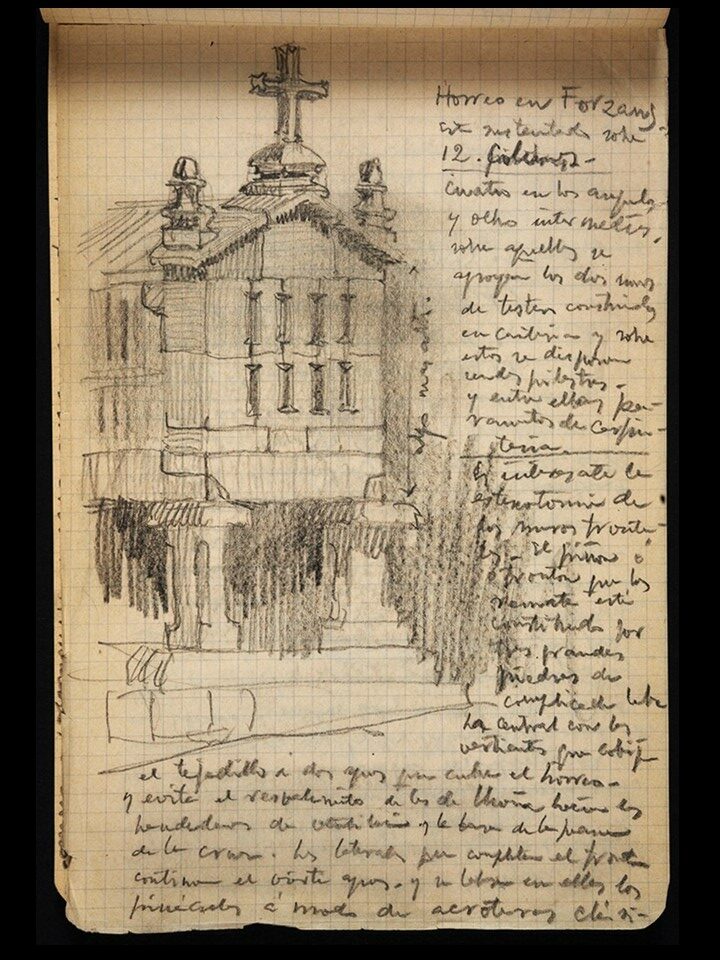 Horreo en Forzans
está sustentado sobre
12. pilares -
cuatro en los angulos
y ocho intermedios,
sobre aquellos se
apoyan los dos muros
de testero construidos
en cantería y sobre
estos se disponen
sendas pilastras -
y entre ellas para-
mentos de carpin-
tería.
Es interesante la
estereotomia de
los muros fronta-
les - El piñon ó
fronton que los
remata está
constituido por
tres grandes
piedras de
complicada labra
La central con las
vertientes que cobija
el tejadillo a dos aguas que cubre el horreo -
y evita el de las de lluvia hacia los
de ventilación y la base de la peana
de la cruz. Los laterales que completan el frontón
continuan el vierte aguas - y se labran en ellas los
pináculos á modo de acroteras clási-